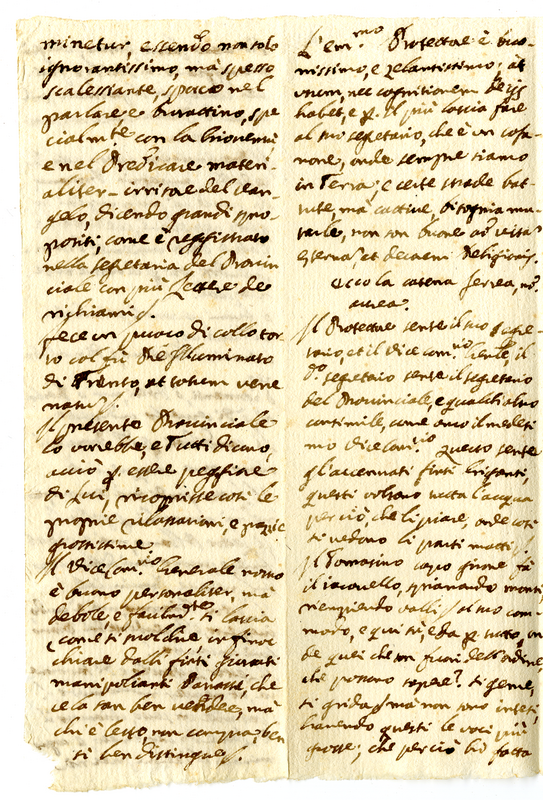 minetur, essendo non solo
ignorantissimo, mà spesso
scalessante, sporco nel
parlare e burattino, spe
cialmte con la
e nel Predicare materi-
aliter irrisore del Van-
gelo, dicendo grandi spro-
positi; come è reggistrato
nella segretaria del Provin
ciale con più Lettere de
richiami.
fece un puoco di collo tor
to col fù Pre Illuminato
di Trento, at totum vene
num.
Il presente Provinciale
lo vorebbe, e Tutti dicono,
acciò p. essere peggiore
di Lui, ricoprisse così le
proprie rilassazioni e pazzie
grossissime.
Il Vice Comrio Generale nostro
è buono personaliter, mà
debole, e si lascia
come si suol dire infinoc
chiare dalli finti
manipolianti che
ce la san ben vendere, mà
chi è lesso, non compra, ben
si ben distingue.
L'emmo Protectore è buo-
nissimo, e zelantissimo; at
unum, nec cognitionem de ijs
habet, e p. il più lascia fare
al suo segretario, che è un
none, onde sempre siamo
in Terra; e certe strade bat-
tute, mà cattive, bisognia mu-
tarle, non son buone ad vitam
eternam et decorem Religionis.
ecco la catena ferrea, no
aurea.
Il Protectore sente il suo segre-
tario, et il Vice Comrio Genle, il
do segretario sente il segretario
del Provinciale, e qualch altro
consimile, come anco il medesi
mo Vice Comrio questo sente
gl'accennati finti
questi voltano tutta l'acqua
perciò, che li piace, onde così
si vedono li parti matti
Il Tomasino capo fà
il spianando monti
riempiendo valli al suo com-
modo, e qui stà, e dà p. tutto, on
de quei che son fuori dell'ordine,
che possono sapere? si geme,
si grida, mà non sono intesi,
havendo questi le voci più
grosse; che perciò hò fatto